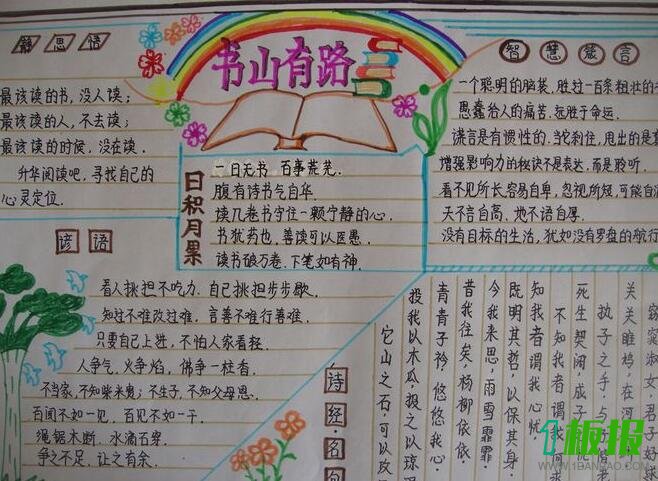 静思语
最该读的书,没人读;
最该读的人,不去读;
最该读的时候,没在读.
升华阅读吧,寻找自己的
心灵定位.
书山有路
智慧箴言
一个聪明的脑袋,胜过一百条粗壮的
愚蠢给人的痛苦,远胜于命运.
谎言是有惯性的.当你刹住,甩出的是
增强影响力的秘诀不是表达,而是聆听.
看不见所长,容易自卑,忽视所短,可能自
天不言自高、地不语自厚.
没有目标的生活,犹如没有罗盘的航行
日积月累
一日无书 百事荒芜.
腹有诗书气自华.
读几卷书守住一颗宁静的心.
书犹药也,善读可以医愚.
读书破万卷、下笔如有神.
谚语
看人挑担不吃力,自己挑担步步歇.
知过不难改过难,言善不难行善难.
只要自己上进,不怕人家看轻.
人争气,火争焰,佛争一柱香.
不当家,不知柴米贵;不生子,不知父母恩.
百闻不如一见,百见不如一干.
绳锯木断,水滴石穿.
争之不足,让之有余.
诗经名句
窈窕淑女,君子好逑
关关雎鸠,在河
执子之手,与子偕老
死生契阔,子成
不知我者谓我何求
知我者谓我心忧
既明其哲,以保其身.
今我来思,雨雪霏霏
昔我往矣,杨柳依依
青青子衿,悠悠我心.
投我以木瓜,报之以琼
它山之石,可以攻
1板报
WWW.1BANBAO.COM